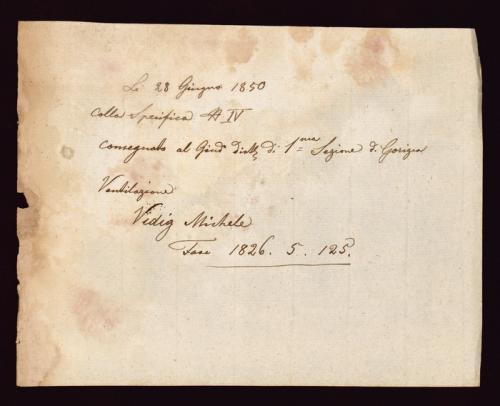 Li 28 Giugno 1850
colla Specifica # IV
consegnato al Giud° distt. di 1ma Sezione di Gorizia
Ventilazione
Vidig Michele
Fasc 1826. 5. 125.